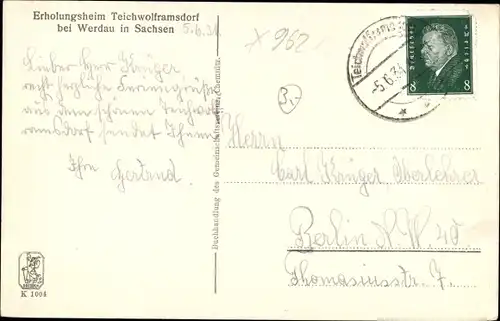 Erholungsheim Teichwolframsdorf
bei Werdau in Sachsen
5.6.31
X 962
3,-
Lieber Herr Krüger
recht herzliche Feriengrüße
aus dem schönen Teichwolf-
ramsdorf sendet Ihnen
Ihre Gertrud.
Buchhandlung des Gemeinschaftsvereins, Chemnitz.
Teichwolframsdorf
-5.6.31
Deutsches Reich
8 8
Herrn
Carl Krüger, Oberlehrer
Berlin N.W. 40
Thomasiusstr. 7.
K 1004